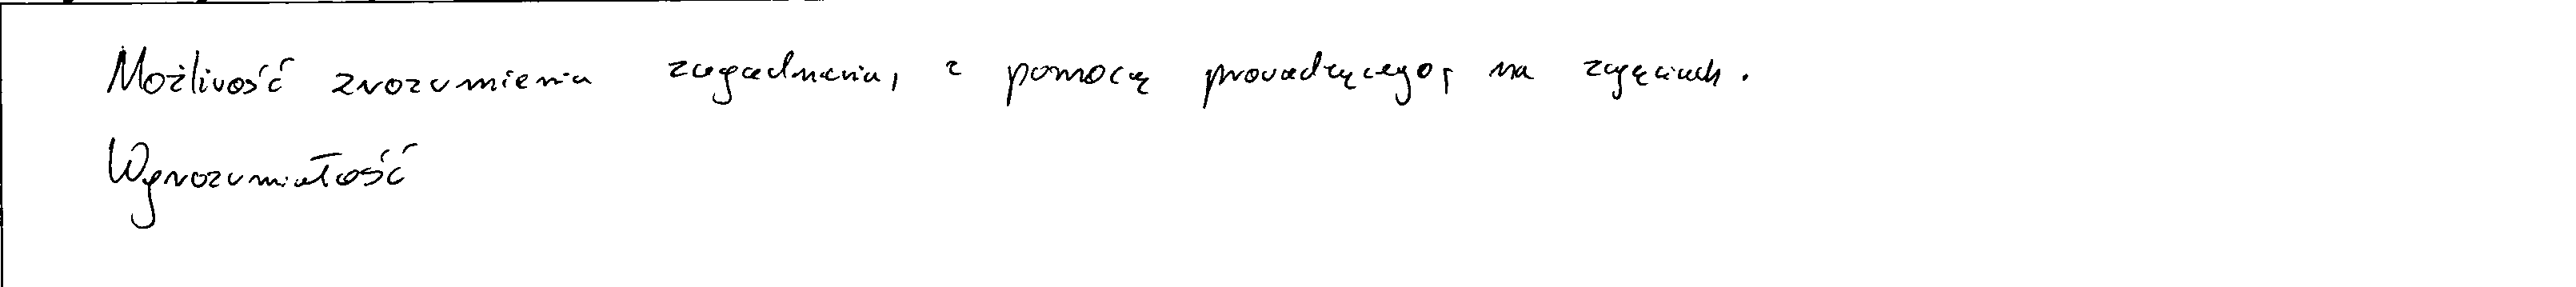 Możliwość zrozumienia zagadnienia, z pomocą prowadzącego, na zajęciach.
Wyrozumiałość